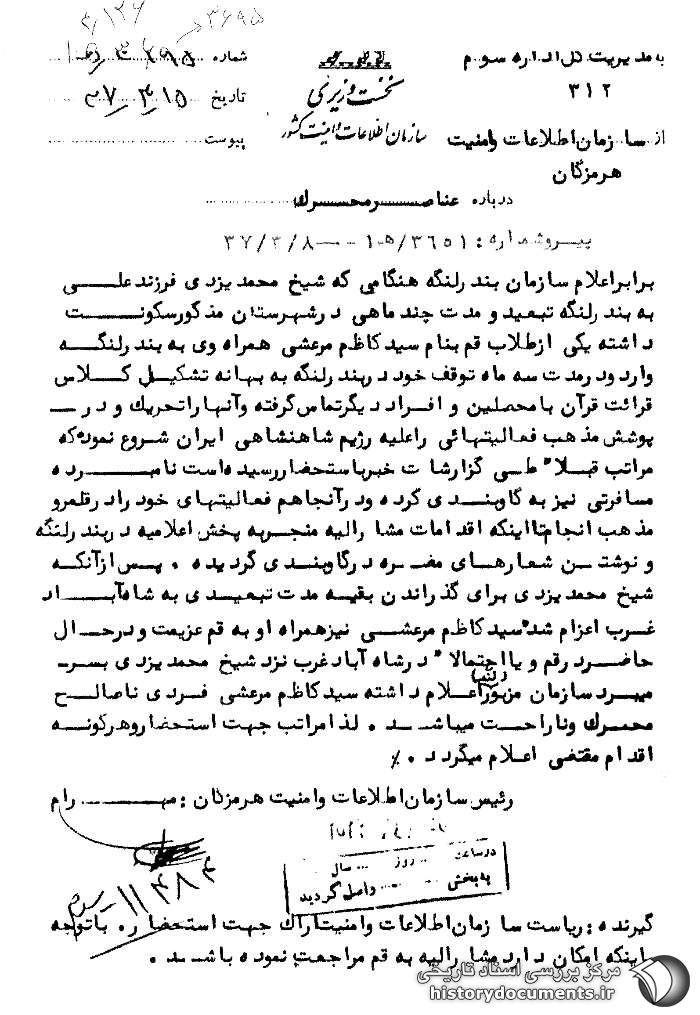 ۳۶۹۵
به مدیریت کل اداره سوم
۳۱۲
از سازمان اطلاعات وامنیت
هرمزگان
نخست وزیری
سازمان اطلاعات وامنیت کشور
شماره
تاریخ ۳۷/۳/۱۵
پیوست
درباره عناصر محرک
پیروشماره: ۱۰ﻫ/۳۶۵۱ -- ۳۷/۳/۸
برابراعلام سازمان بندرلنگه هنگامی که شیخ محمدیزدی فرزندعلی
به بندرلنگه تبعید و مدت چند ماهی درشهرستان مذکورسکونت
داشته یکی ازطلاب قم بنام سیدکاظم مرعشی همراه وی به بندرلنگه
وارد ودرمدت سه ماه توقف خود دربندرلنگه به بهانه تشکیل کلاس
قرائت قرآن بامحصلین و افراد دیگرتماس گرفته وآنهاراتحریک و در
پوشش مذهب فعالیتهائی راعلیه رژیم شاهنشاهی ایران شروع نموده که
مراتب قبلا" طی گزارشات خبرباستحضاررسیده است نامبرده
مسافرتی نیزبه گاوبندی کرده ودرآنجاهم فعالیتهای خودرادرقلمرو
مذهب انجام تااینکه اقدامات مشارالیه منجربه پخش اعلامیه دربندرلنگه
و نوشتن شعارهای مضره درگاوبندی گردیده . پس ازآنکه
شیخ محمدیزدی برای گذراندن بقیه مدت تبعیدی به شاه آباد
غرب اعزام شد سیدکاظم مرعشی نیزهمراه او به قم عزیمت ودرحال
حاضردرقم و یااحتمالا" درشاه آبادغرب نزد شیخ محمدیزدی بسر
میبرد سازمان مزبور اعلام داشته سیدکاظم مرعشی فردی ناصالح
محرک وناراحت میباشد . لذامراتب جهت استحضاروهرگونه
اقدام مقتضی اعلام میگردد . ٪
رئیس سازمان اطلاعات وامنیت هرمزگان : مهرام
در ساعت ... روز ... سال ...
به بخش ... واصل گردید
۱۱۴۸۴
گیرنده : ریاست سازمان اطلاعات وامنیت اراک جهت استحضار . باتوجه
اینکه امکان دارد مشارالیه به قم مراجعت نموده باشد .
مرکز بررسی اسناد تاریخی
historydocuments.ir